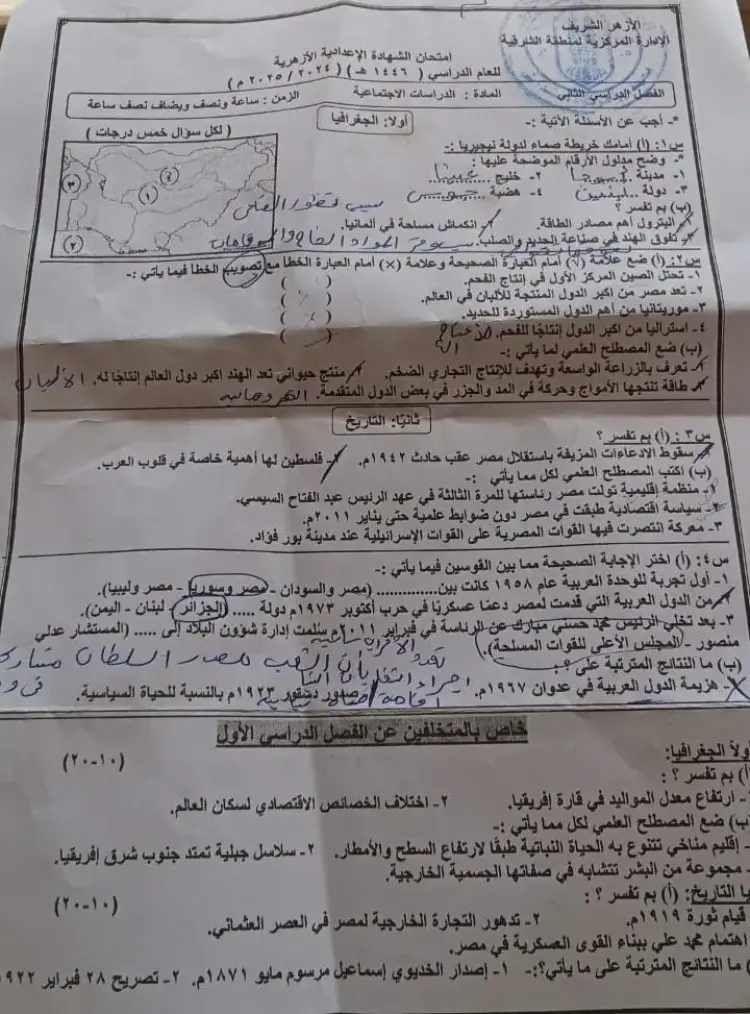 الأزهر الشريف
الإدارة المركزية لمنطقة الشرقية
امتحان الشهادة الإعدادية الأزهرية
للعام الدراسي ( ١٤٤٦ هـ ) ( ٢٠٢٤ / ٢٠٢٥ م )
الفصل الدراسي الثاني المادة : الدراسات الاجتماعية الزمن : ساعة ونصف ويضاف نصف ساعة
*- أجب عن الأسئلة الآتية :- أولا: الجغرافيا ( لكل سؤال خمس درجات )
س١: (أ) أمامك خريطة صماء لدولة نيجيريا :-
*- وضح مدلول الأرقام الموضحة عليها :
١- مدينة .... ٢- خليج .... غينيا
٣- دولة .... بنين ٤- هضبة .... جوس
١ ٢ ٣ ٤
(ب) بم تفسر ؟
البترول أهم مصادر الطاقة. انكماش مساحة في ألمانيا.
تفوق الهند في صناعة الحديد والصلب.
س٢: (أ) ضع علامة (√) أمام العبارة الصحيحة وعلامة (×) أمام العبارة الخطأ مع تصويب الخطأ فيما يأتي :-
١- تحتل الصين المركز الأول في إنتاج الفحم. ( )
٢- تعد مصر من اكبر الدول المنتجة للألبان في العالم. ( )
٣- موريتانيا من أهم الدول المستوردة للحديد. ( )
٤- استراليا من اكبر الدول إنتاجًا للفحم. ( )
(ب) ضع المصطلح العلمي لما يأتي :-
تعرف بالزراعة الواسعة وتهدف للإنتاج التجاري الضخم. منتج حيواني تعد الهند اكبر دول العالم إنتاجًا له. الألبان
طاقة تنتجها الأمواج وحركة في المد والجزر في بعض الدول المتقدمة.
ثانيًا: التاريخ
س٣: (أ) بم تفسر ؟
سقوط الادعاءات المزيفة باستقلال مصر عقب حادث ١٩٤٢م. فلسطين لها أهمية خاصة في قلوب العرب.
(ب) اكتب المصطلح العلمي لكل مما يأتي :-
١- منظمة إقليمية تولت مصر رئاستها للمرة الثالثة في عهد الرئيس عبد الفتاح السيسي.
٢- سياسة اقتصادية طبقت في مصر دون ضوابط علمية حتى يناير ٢٠١١م.
٣- معركة انتصرت فيها القوات المصرية على القوات الإسرائيلية عند مدينة بور فؤاد.
س٤: (أ) اختر الإجابة الصحيحة مما بين القوسين فيما يأتي :-
١- أول تجربة للوحدة العربية عام ١٩٥٨ كانت بين............. (مصر والسودان - مصر وسوريا - مصر وليبيا).
من الدول العربية التي قدمت لمصر دعمًا عسكريًا في حرب أكتوبر ١٩٧٣م دولة ..... (الجزائر - لبنان - اليمن).
٣- بعد تخلي الرئيس محمد حسني مبارك عن الرئاسة في فبراير ٢٠١١م سلمت إدارة شؤون البلاد إلى ..... (المستشار عدلي
منصور - المجلس الأعلى للقوات المسلحة).
(ب) ما النتائج المترتبة على ؟ :-
هزيمة الدول العربية في عدوان ١٩٦٧م. صدور دستور ١٩٢٣م بالنسبة للحياة السياسية.
خاص بالمتخلفين عن الفصل الدراسي الأول
ولاً الجغرافيا: (١٠-٢٠)
(أ) بم تفسر ؟ :
- ارتفاع معدل المواليد في قارة إفريقيا. ٢- اختلاف الخصائص الاقتصادي لسكان العالم.
(ب) ضع المصطلح العلمي لكل مما يأتي :-
- إقليم مناخي تتنوع به الحياة النباتية طبقًا لارتفاع السطح والأمطار. ٢- سلاسل جبلية تمتد جنوب شرق إفريقيا.
- مجموعة من البشر تتشابه في صفاتها الجسمية الخارجية.
يا التاريخ: (أ) بم تفسر ؟ : (١٠-٢٠)
قيام ثورة ١٩١٩م. ٢- تدهور التجارة الخارجية لمصر في العصر العثماني.
اهتمام محمد علي ببناء القوى العسكرية في مصر.
) ما النتائج المترتبة على ما يأتي؟:- ١- إصدار الخديوي إسماعيل مرسوم مايو ١٨٧١م. ٢- تصريح ٢٨ فبراير ١٩٢٢